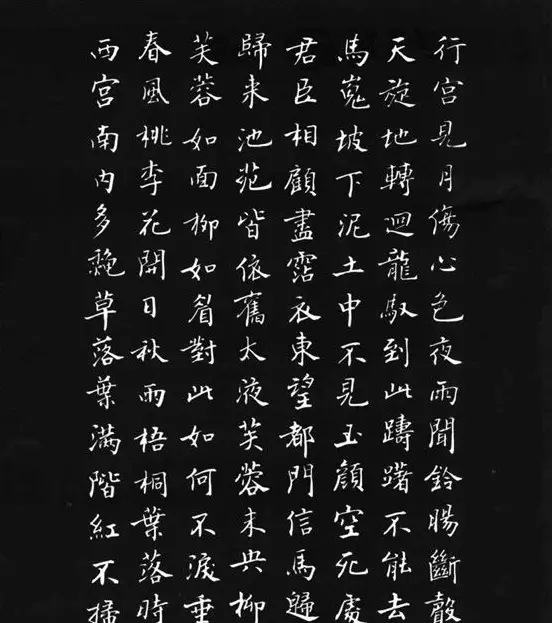 行宮見月傷心色夜雨聞鈴腸斷聲
天旋地轉迴龍馭到此躊躇不能去
馬嵬坡下泥土中不見玉顏空死處
君臣相顧盡霑衣東望都門信馬歸
歸來池苑皆依舊太液芙蓉未央柳
芙蓉如面柳如眉對此如何不淚垂
春風桃李花開日秋雨梧桐葉落時
西宮南內多穐草落葉滿階紅不掃